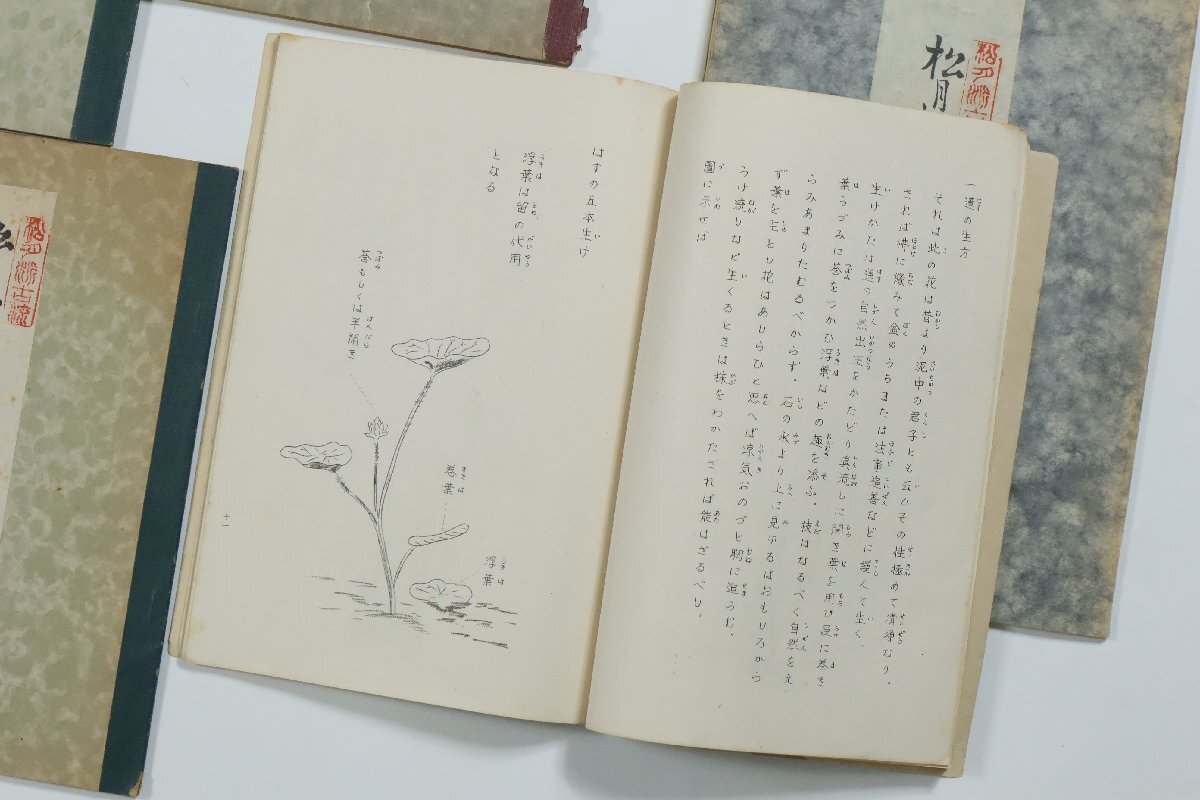 一蓮の生方
それは此の花は昔より泥中の君子とも云ひその性極めて清浄なり、
されば佛に縁みて盆のうちまたは法事追善などに挿んで生く、
生けかたは蓮の自然出生をかたどり真流しに開き葉を用ひ受に巻き
葉うづみに莟をつかひ浮葉はどの趣を添ふ、枝はなるべく自然をえ
らみあまりたむるべからず、石の水より上に見ゆるばおもしろから
ず葉を主とし花はあしらひと思へば凉気おのづと胸に迫らむ、
うけ流しなど生くるときは株をわかたざれば能はざるべり、
圖に示せば
はすの五本生け
浮葉は留の代用
となる
莟もしくは半開き
巻葉
浮葉
十一
松月
松月洲古流